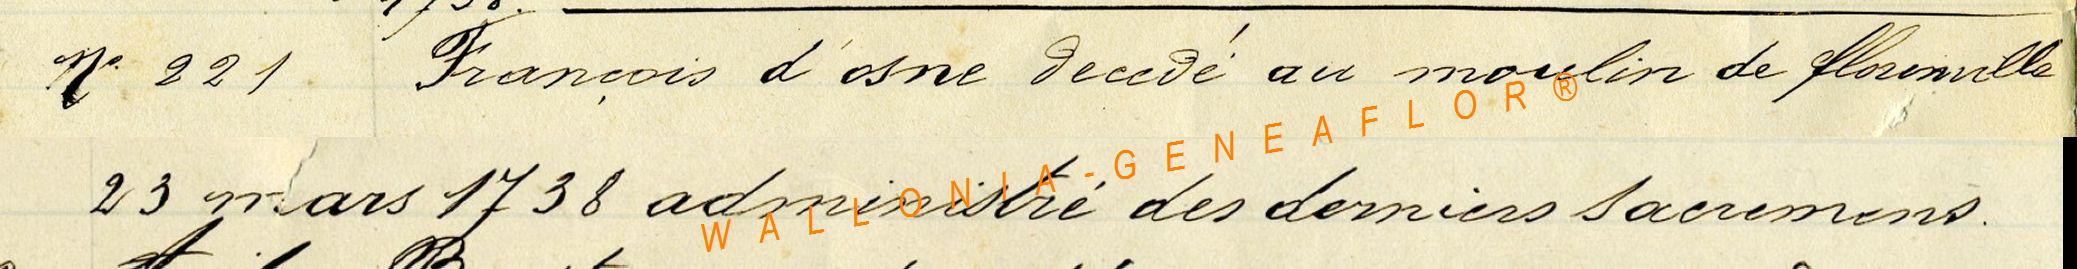 1738.
Nº 221 François d'osne decedé au moulin de florenville
23 mars 1738 administré des derniers sacremens.
WALLONIA-GENEAFLOR®